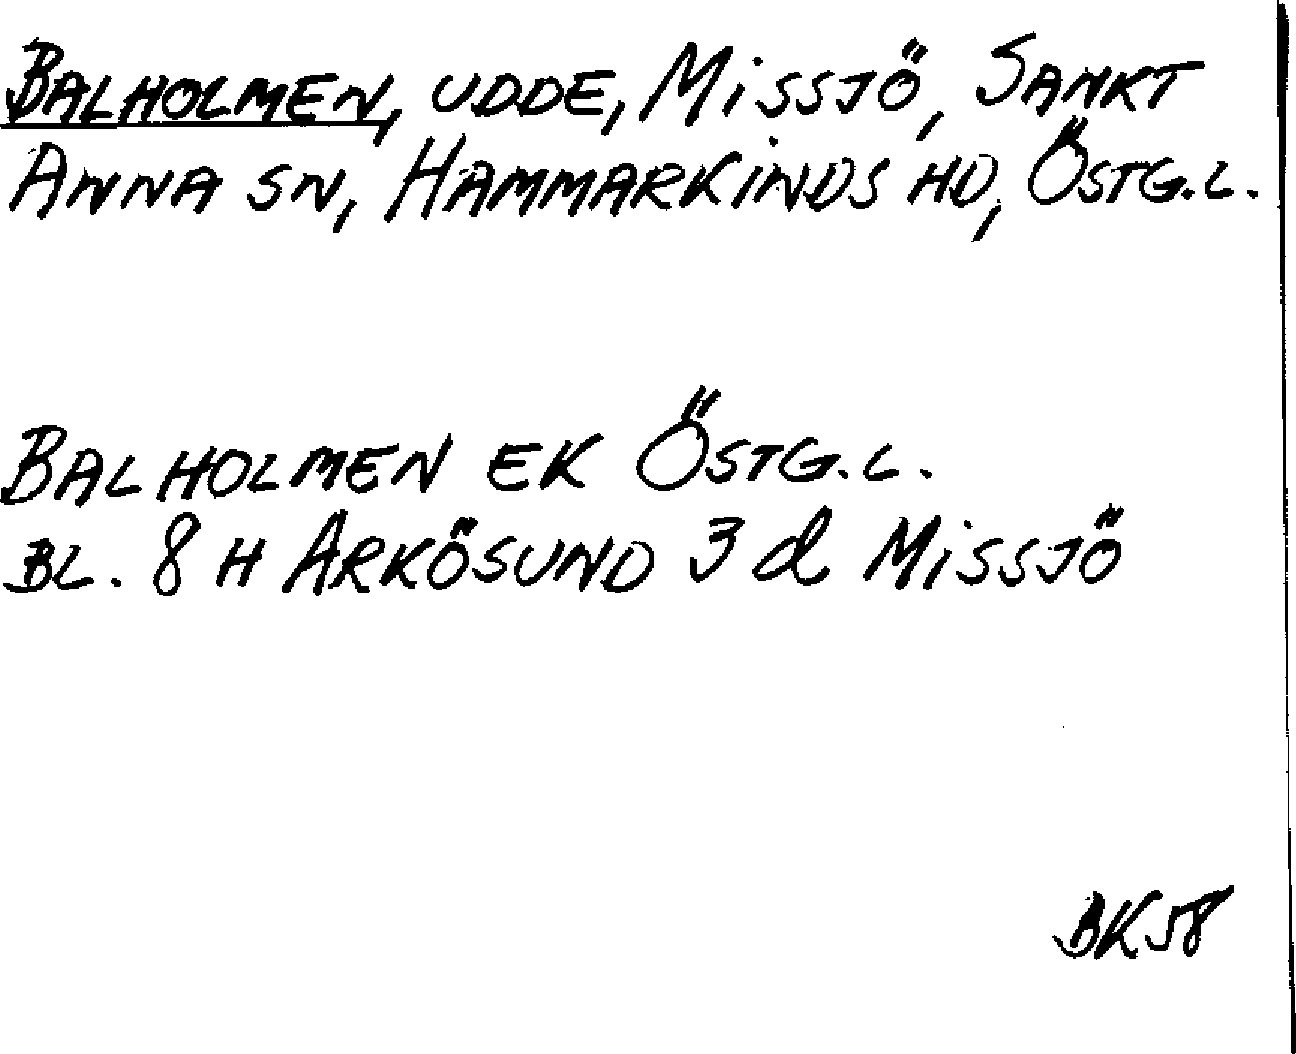 BALHOLMEN, UDDE, MISSJÖ, SANKT
ANNA SN, HAMMARKINDS HD, ÖSTG.L.
BALHOLMEN EK ÖSTG.L.
BL. 8 H ARKÖSUND 3 d MISSJÖ
BK58